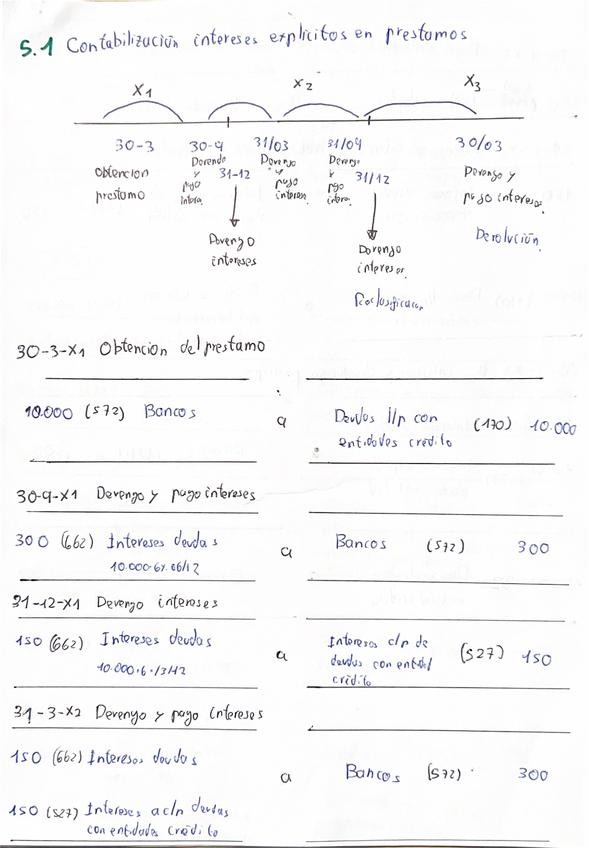 5.1 Contabilización intereses explícitos en prestamos
X1 X2 X3
30-3 30-9 31/03 31/09 30/03
obtencion prestamo
Devengo y pago interes.
31-12
Devengo y pago intereses.
Devengo y pago interes.
31/12
Devengo y pago intereses.
Devolución.
Devengo intereses
Devengo intereses.
Reclasificacion
30-3-X1 Obtencion del prestamo
10.000 (572) Bancos a Deudas l/p con (170) 10.000
entidades credito
30-9-X1 Devengo y pago intereses
300 (662) Intereses deudas a Bancos (572) 300
10.000·6%·06/12
31-12-X1 Devengo intereses
150 (662) Intereses deudas a Intereses c/p de (527) 150
10.000·6·/3/12 deudas con entidad
crédito
31-3-X2 Devengo y pago intereses
150 (662) Intereses deudas a Bancos (572) 300
150 (527) Intereses a c/p deudas
con entidades credito